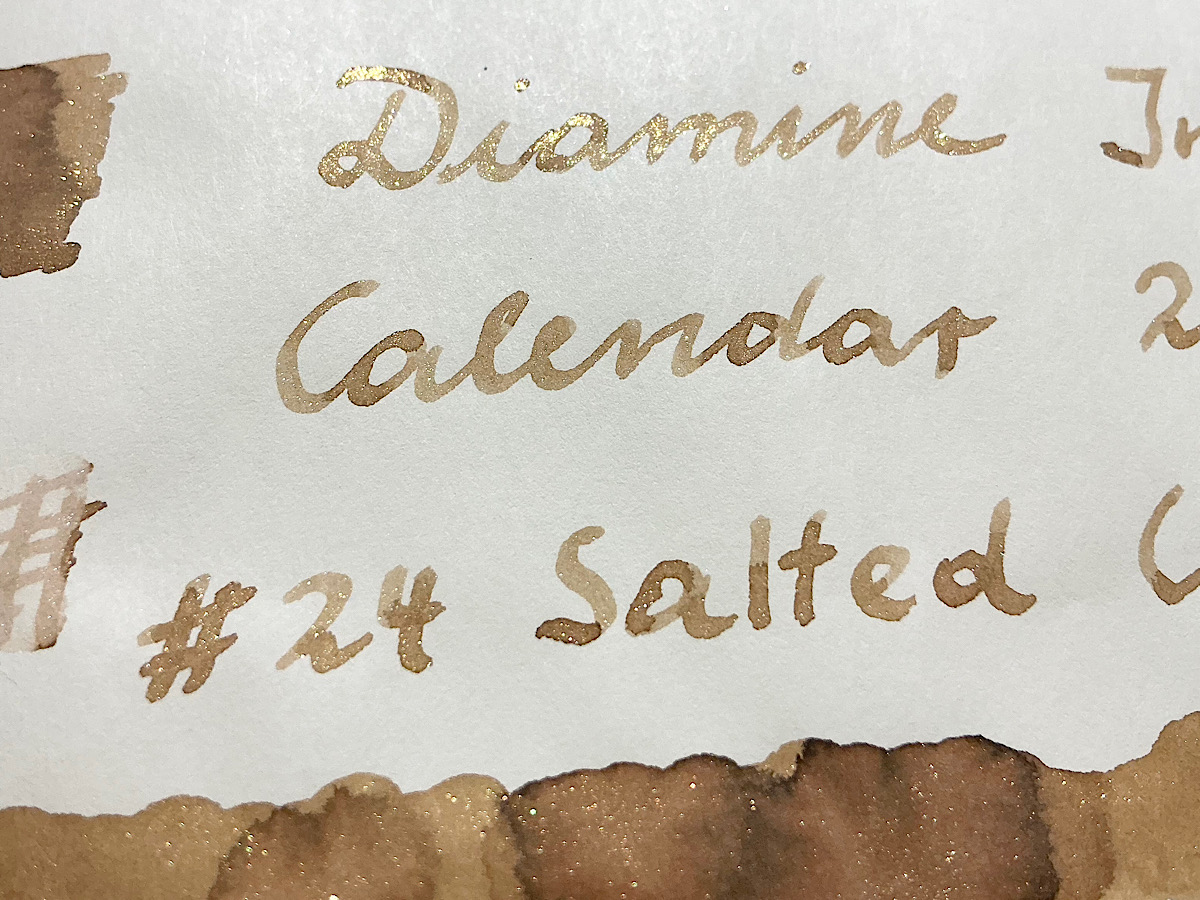 Diamine
Calendar
#24 Salted